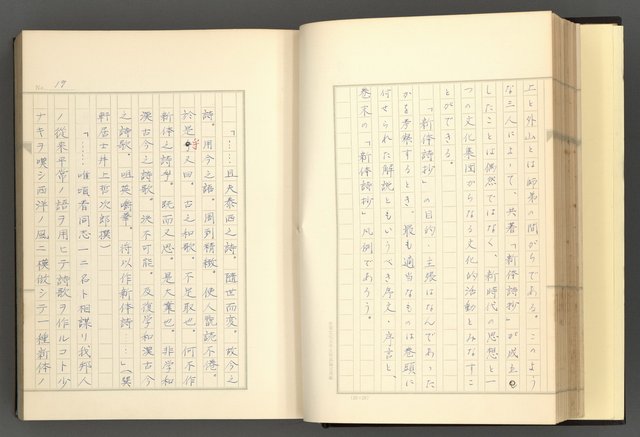 上と外山とは師弟の間がらである。このよう
な三人によって、共著「新体詩抄」が成立
したことは偶然ではなく、新時代の思想と一
つの文化集団からなる文化的活動とみなすこ
とができる。
「新体詩抄」の目的・主張はなんであった
かを考察するとき、最も適当なものは巻頭に
付せられた解説ともいうべき序文・序言と、
巻末の「新体詩抄」凡例であろう。
No. 17
「……且夫泰西之詩。随世而変。故今之
詩。用今之語。周到精緻。使人翫読不倦。
於是乎又曰。古之和歌。不足取也。何不作
新体之詩乎。既而又思。是大業也。非学和
漢古今之詩歌。決不可能。乃復学和漢古今
之詩歌。咀英嚼華。将以作新体詩……」（巽
軒居士井上哲次郎撰）
「……唯唄者同志一二名ト相謀リ我邦人
ノ従来平常ノ語ヲ用ヒテ詩歌ヲ作ルコト少
ナキヲ嘆シ西洋ノ風ニ模倣シテ一種新体ノ
(20×20)